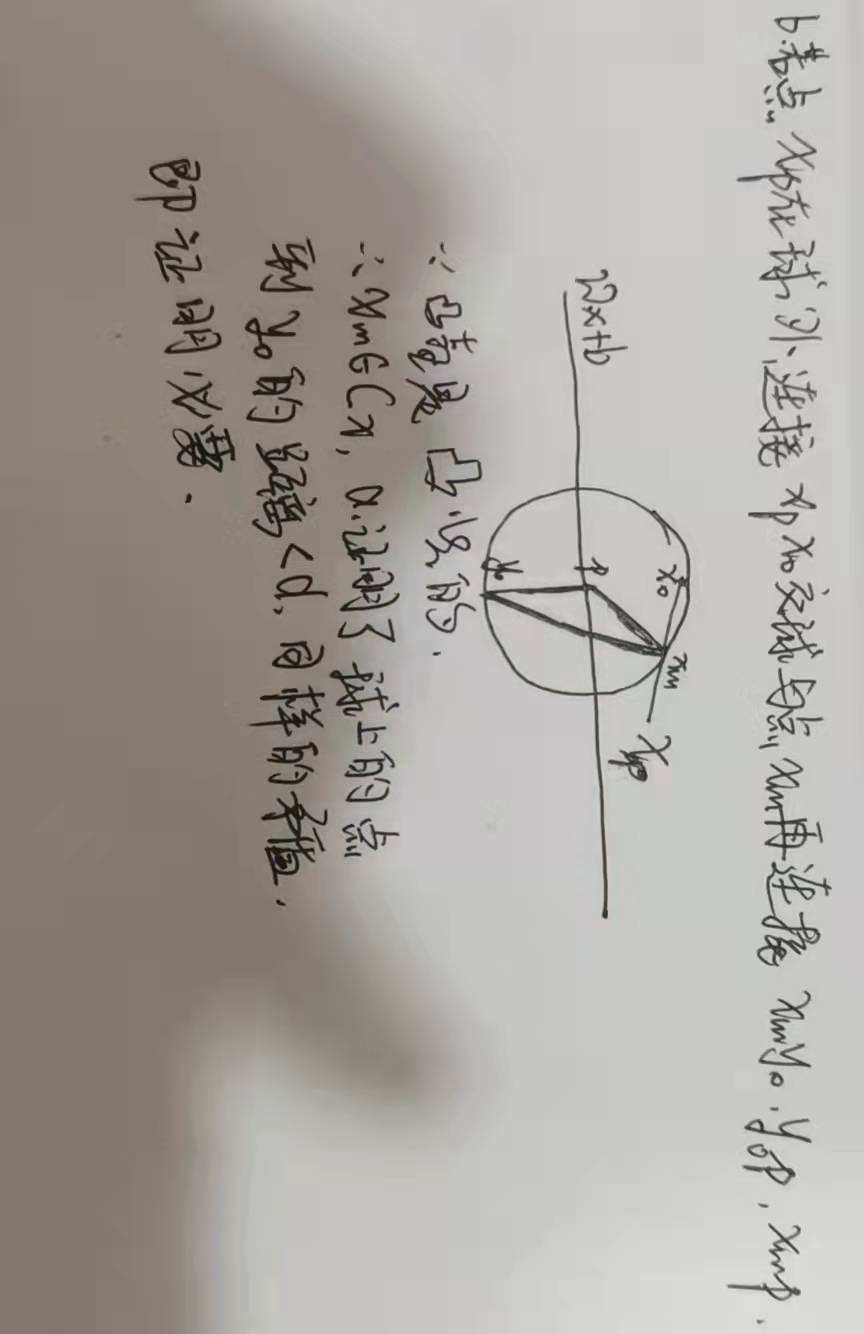 b.若点 xp在球外,连接 xp x0 交球与点 xm再连接 xmy0.y0p,xmp.
x0
xm
xp
wx+b
p
y0
∵ 凸壳是 凸 的.
∴ xm∈Cx, a.证明了球上的点
到 y0 的距离<d, 同样的矛盾.
即证明必要.